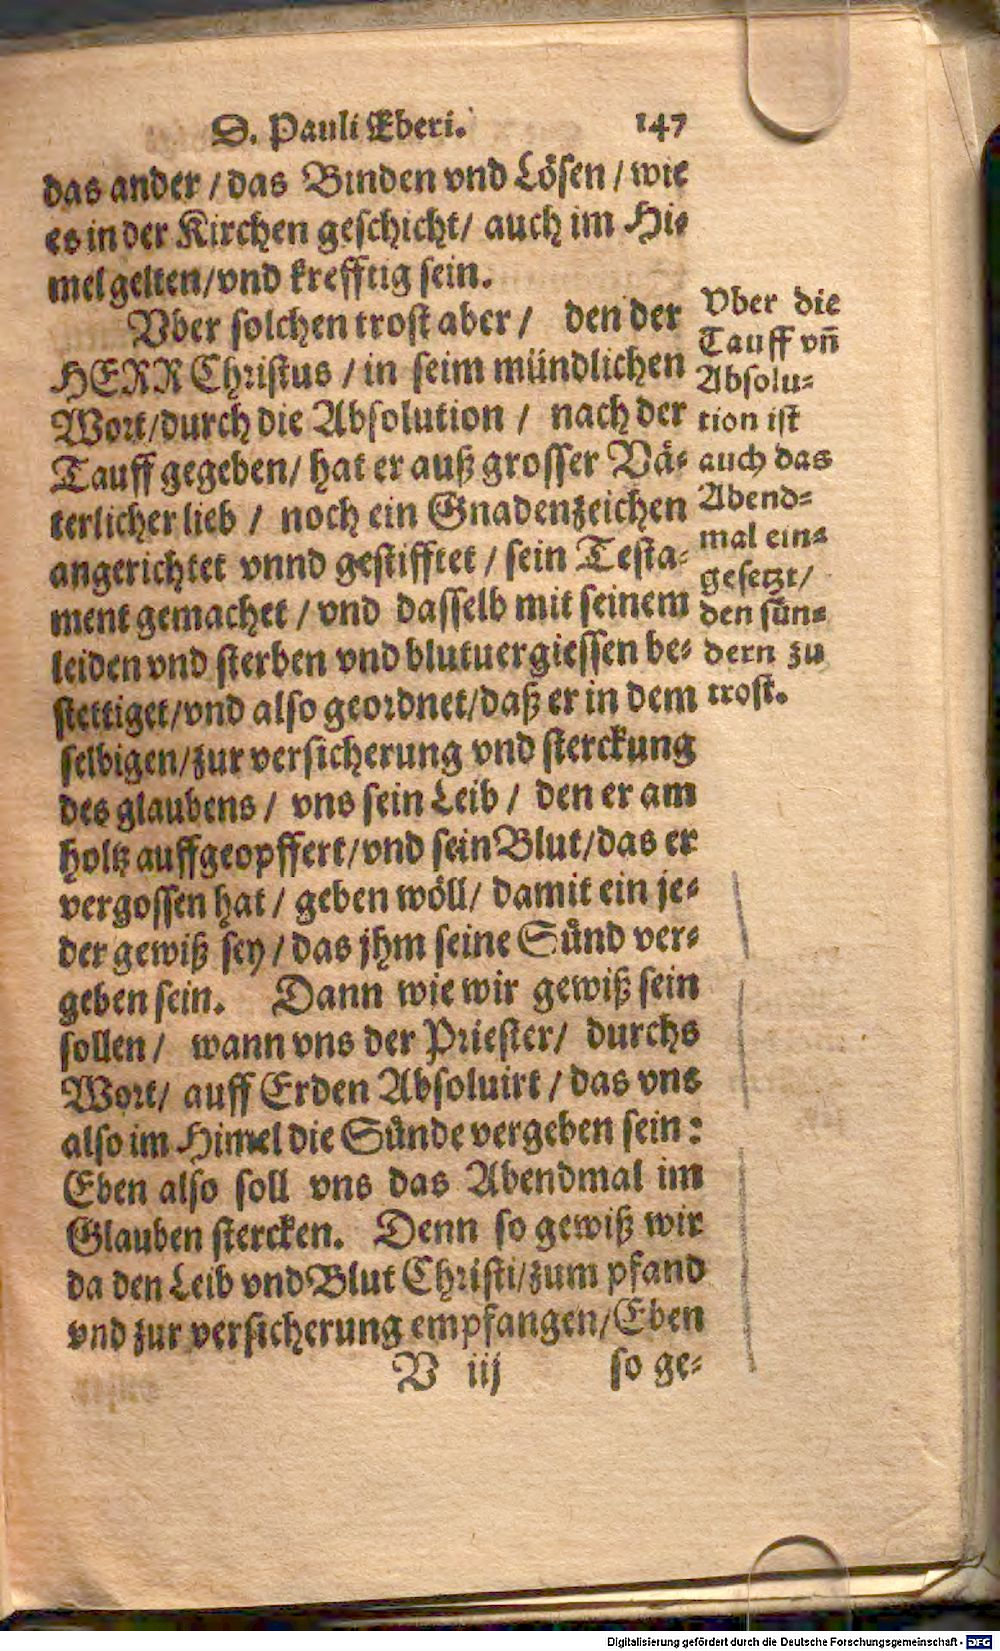 D. Pauli Eberi. 147
das ander / das Binden vnd Lösen / wie
es in der Kirchen geschicht / auch im Hi-
mel gelten / vnd krefftig sein.
Vber solchen trost aber / den der
HERR Christus / in seim mündlichen
Wort / durch die Absolution / nach der
Tauff gegeben / hat er auß grosser Vä-
terlicher lieb / noch ein Gnadenzeichen
angerichtet vnnd gestifftet / sein Testa-
ment gemachet / vnd dasselb mit seinem
leiden vnd sterben vnd blutuergiessen be-
stettiget / vnd also geordnet / daß er in dem
selbigen / zur versicherung vnd sterckung
des glaubens / vns sein Leib / den er am
holtz auffgeopffert / vnd sein Blut / das er
vergossen hat / geben wöll / damit ein je-
der gewiß sey / das jhm seine Sünd ver-
geben sein. Dann wie wir gewiß sein
sollen / wann vns der Priester / durchs
Wort / auff Erden Absoluirt / das vns
also im Himel die Sünde vergeben sein:
Eben also soll vns das Abendmal im
Glauben stercken. Denn so gewiß wir
da den Leib vnd Blut Christi / zum pfand
vnd zur versicherung empfangen / Eben
V iij so ge-
Vber die
Tauff vñ
Absolu-
tion ist
auch das
Abend-
mal ein-
gesetzt /
den sün-
dern zu
trost.
Digitalisierung gefördert durch die Deutsche Forschungsgemeinschaft - DFG